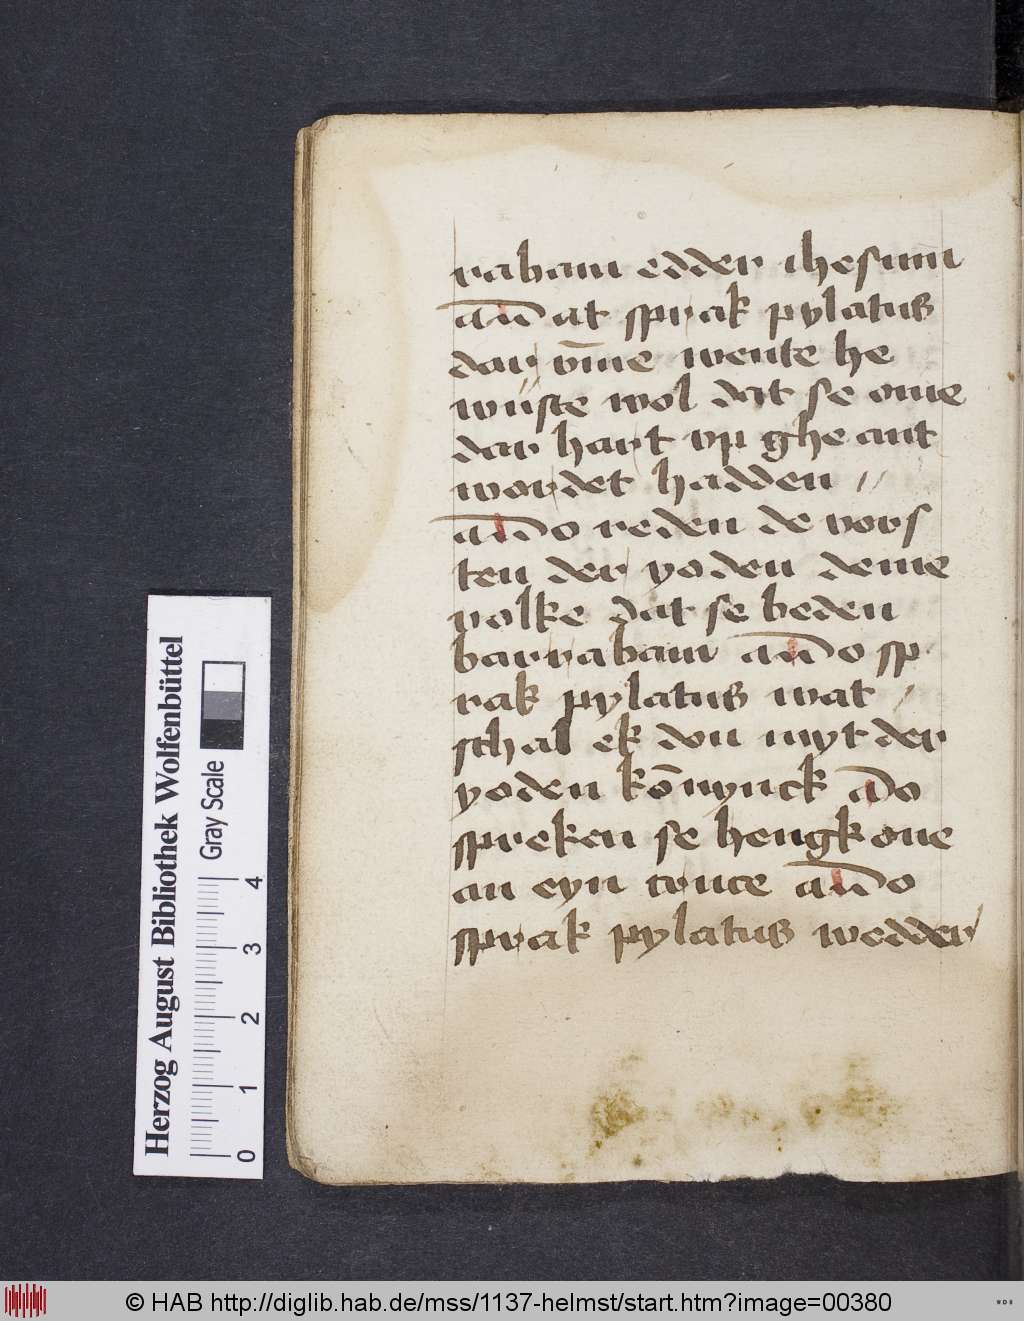 rabam edder ihesum
an̄ at sprak pylatus
dar vm̄e wente he
wuste wol dat se ome
dar hart vp ghe ant
wordet hadden //
an̄o reden de vors
ten der yoden deme
volke dat se beden
barrabam an̄o sp
rak pylatus wat /
schal ek don myt der
yoden kōnynck ās
spreken se hengk one
an eyn cruce an̄o
sprak pylatus wedder
Herzog August Bibliothek Wolfenbüttel
Gray Scale
0 1 2 3 4
© HAB http://diglib.hab.de/mss/1137-helmst/start.htm?image=00380